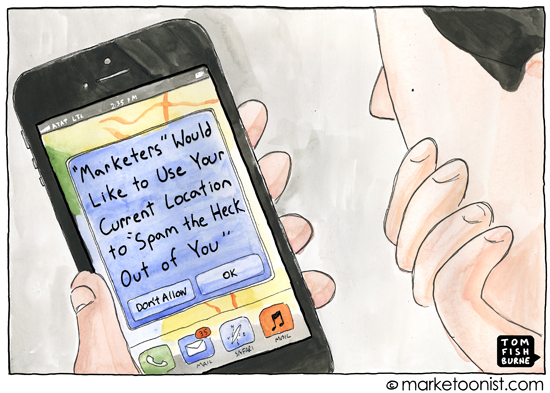 AT&T LTE 2:35 PM
"Marketers" Would
Like to Use Your
Current Location
to "Spam the Heck
Out of You"
Don't Allow
OK
35
MAIL
SAFARI
MUSIC
TOM
FISH
BURNE
© marketoonist.com